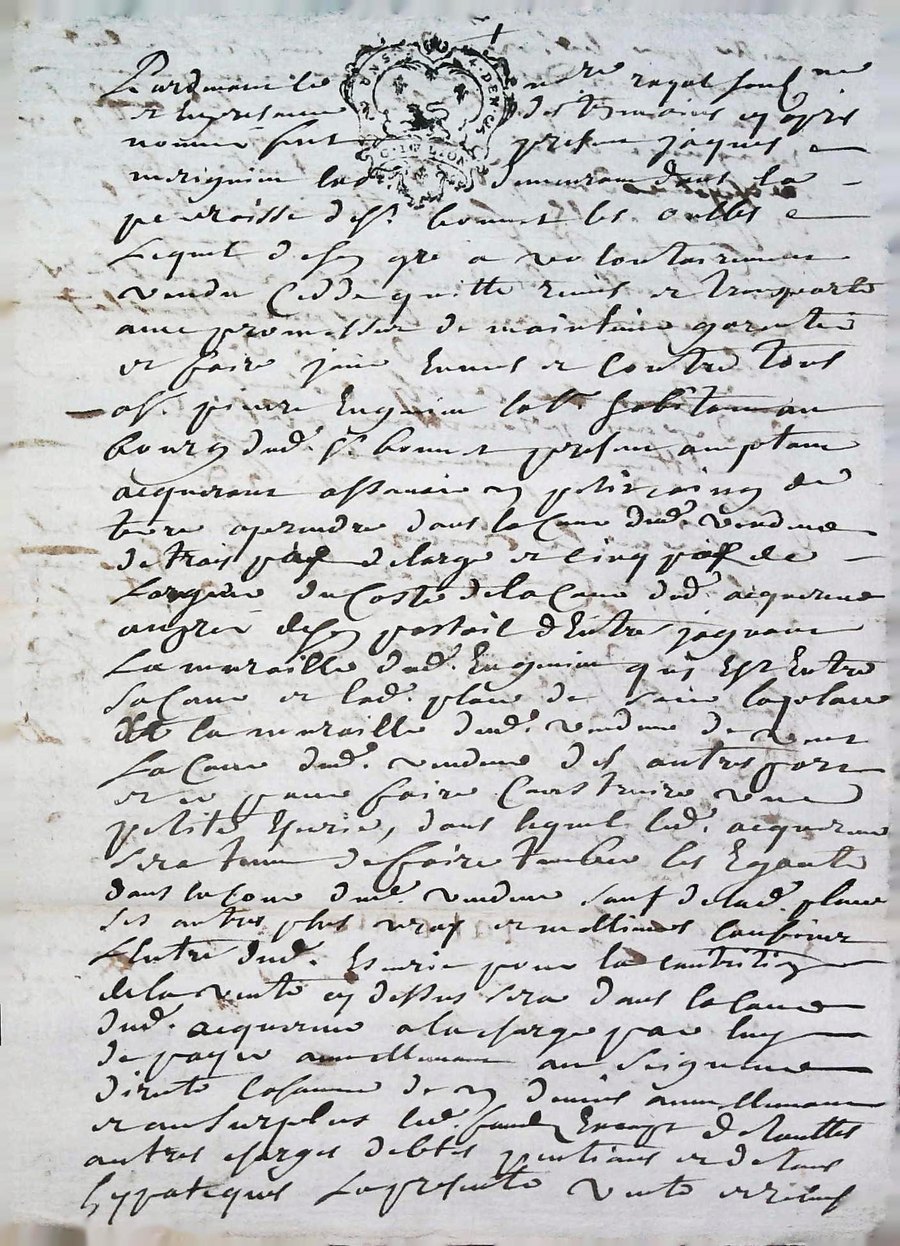 Pardevant le no.re royal soub.né
et en presence des temoins cy apres
nommés fut present jaques
demeurant dans la
parroisse de s.t bonnet les oulles
Lequel de son gré a volontairement
vendu cedde quitte remis et transporté
avec promesse de maintenir garentir
et faire jouir Envers et contre tous
a s.r pierre habitant au
bourg dud. s.t bonnet present acceptant
acquerant assavoir un petit coing de
terre a prendre dans la Cour dud. vendeur
de trois pas de large et cinq pas de
Longueur du Costé de la Cour dud. acquereur
auprès de son portail d'Entrée joignant
La muraille dud. qui Est Entre
sa Cour et lad. place de la place
la muraille dud. vendeur de vent
La Cour dud. vendeur des autres parts
et ce pour faire Construire une
petite Ecurie, dans lequel led. acquereur
sera tenu de faire tomber les Egouts
dans la Cour dud. vendeur sauf de lad. place
ses autres plus vrays et meilleurs confins
L'Entrée dud. Ecurie pour la
de la vente cy dessus sera dans la Cour
dud. acquereur a la charge par luy
de payer annuellement au Seigneur
direct la somme de deniers annuellement
et au surplus led. fond Exempt de touttes
autres charges debtes pentions et de tous
hypoteques La presente vente et remis